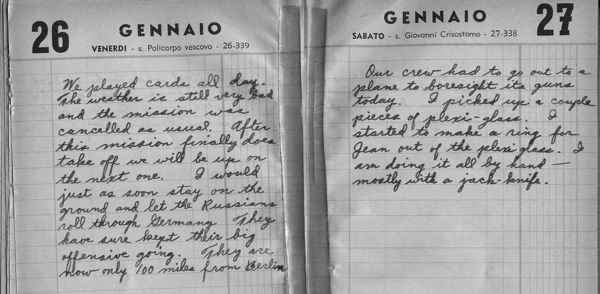 26
GENNAIO
VENERDI - s. Policarpo vescovo - 26-339
We played cards all day.
The weather is still very bad
and the mission was
cancelled as usual. After
this mission finally does
take off we will be up on
the next one. I would
just as soon stay on the
ground and let the Russians
roll through Germany. They
have sure kept their big
offensive going. They are
now only 100 miles from Berlin
GENNAIO
27
SABATO - s. Giovanni Crisostomo - 27-338
Our crew had to go out to a
plane to boresight its guns
today. I picked up a couple
pieces of plexi-glass. I
started to make a ring for
Jean out of the plexi-glass. I
am doing it all by hand —
mostly with a jack-knife.